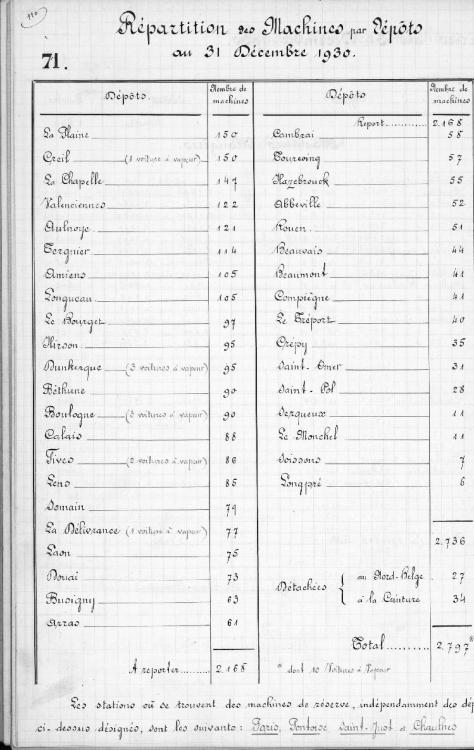 110
Répartition des Machines par Dépôts
au 31 Décembre 1930.
71.
Dépôts. Nombre de machines
La Plaine 150
Creil (1 voiture à vapeur) 150
La Chapelle 147
Valenciennes 122
Aulnoye 121
Tergnier 114
Amiens 105
Longueau 105
Le Bourget 97
Hirson 95
Dunkerque (3 voitures à vapeur) 95
Béthune 90
Boulogne (3 voitures à vapeur) 90
Calais 88
Fives (2 voitures à vapeur) 86
Lens 85
Somain 79
La Délivrance (1 voiture à vapeur) 77
Laon 75
Douai 73
Busigny 63
Arras 61
A reporter 2.168
Dépôts Nombre de machines
Report 2.168
Cambrai 58
Tourcoing 57
Hazebrouck 55
Abbeville 52
Rouen 51
Beauvais 44
Beaumont 41
Compiègne 41
Le Tréport 40
Crépy 35
Saint-Omer 31
Saint-Pol 28
Serqueux 11
Le Monchel 11
Soissons 7
Longpré 6
2.736
Détachées { au Nord-Belge 27
à la Ceinture 34
Total 2.797*
* dont 10 Voitures à Vapeur
Les stations où se trouvent des machines de réserve, indépendamment des dép
ci-dessus désignés, sont les suivants : Paris, Pontoise Saint-Just & Chaulnes